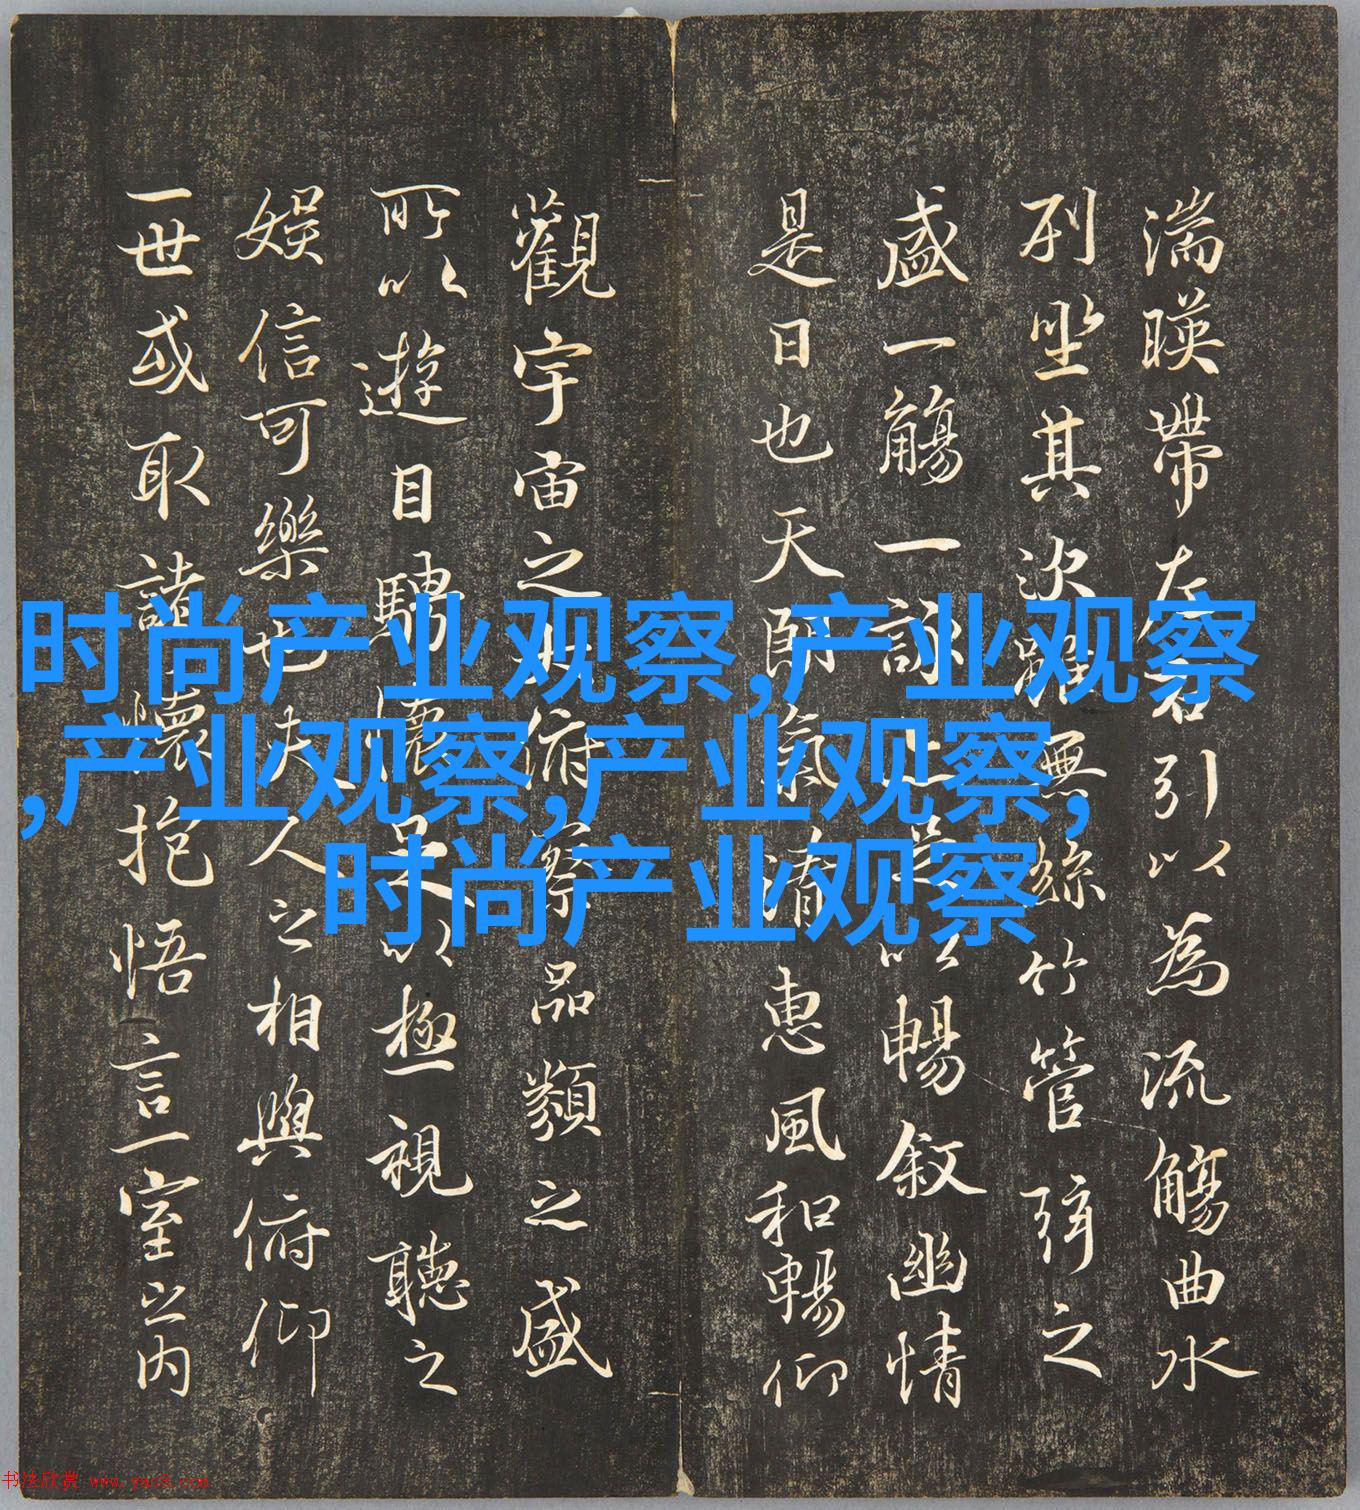 湍暎帶左右引以為流觴曲水
列坐其次雖無絲竹管弦之
盛一觴一詠亦足以暢敘幽情
是日也天朗氣清惠風和暢仰
觀宇宙之大俯察品類之盛
所以遊目騁懷足以極視聽之
娛信可樂也夫人之相與俯仰
一世或取諸懷抱悟言一室之內
时尚产业观察,产业观察
,产业观察,产业观察,
时尚产业观察
书法欣赏 www.yac8.com